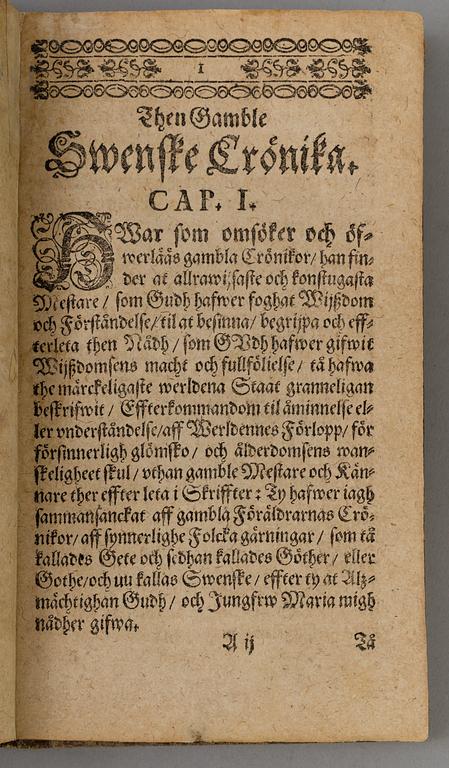 1
Then Gamble
Swenske Crönika.
CAP. I.
HWar som omsöker och öf-
werläås gambla Crönikor/ han fin-
der at allrawijsaste och konstugasta
Mestare/ som Gudh hafwer foghat Wijßdom
och Förståndelse/ til at besinna/ begrijpa och eff-
terleta then Nådh/ som GVdh hafwer gifwit
Wijßdomsens macht och fullföllelse/ tå hafwa
the märckeligaste werldena Staat granneligan
beskrifwit/ Effterkommandom til åminnelse el-
ler vnderståndelse/ aff Werldennes Förlopp/ för
försinnerligh glömsko/ och ålderdomsens wan-
skeligheet skul/ vthan gamble Mestare och Kän-
nare ther effter leta i Skriffter: Ty hafwer iagh
sammansanckat aff gambla Föräldrarnas Crö-
nikor/ aff synnerlighe Folcka gärningar/ som tå
kallades Gete och sedhan kallades Göther/ eller
Gothe/ och nu kallas Swenske/ effter ty at Alz-
mächtighan Gudh/ och Jungfrw Maria migh
nådher gifwa.
A ij Tå